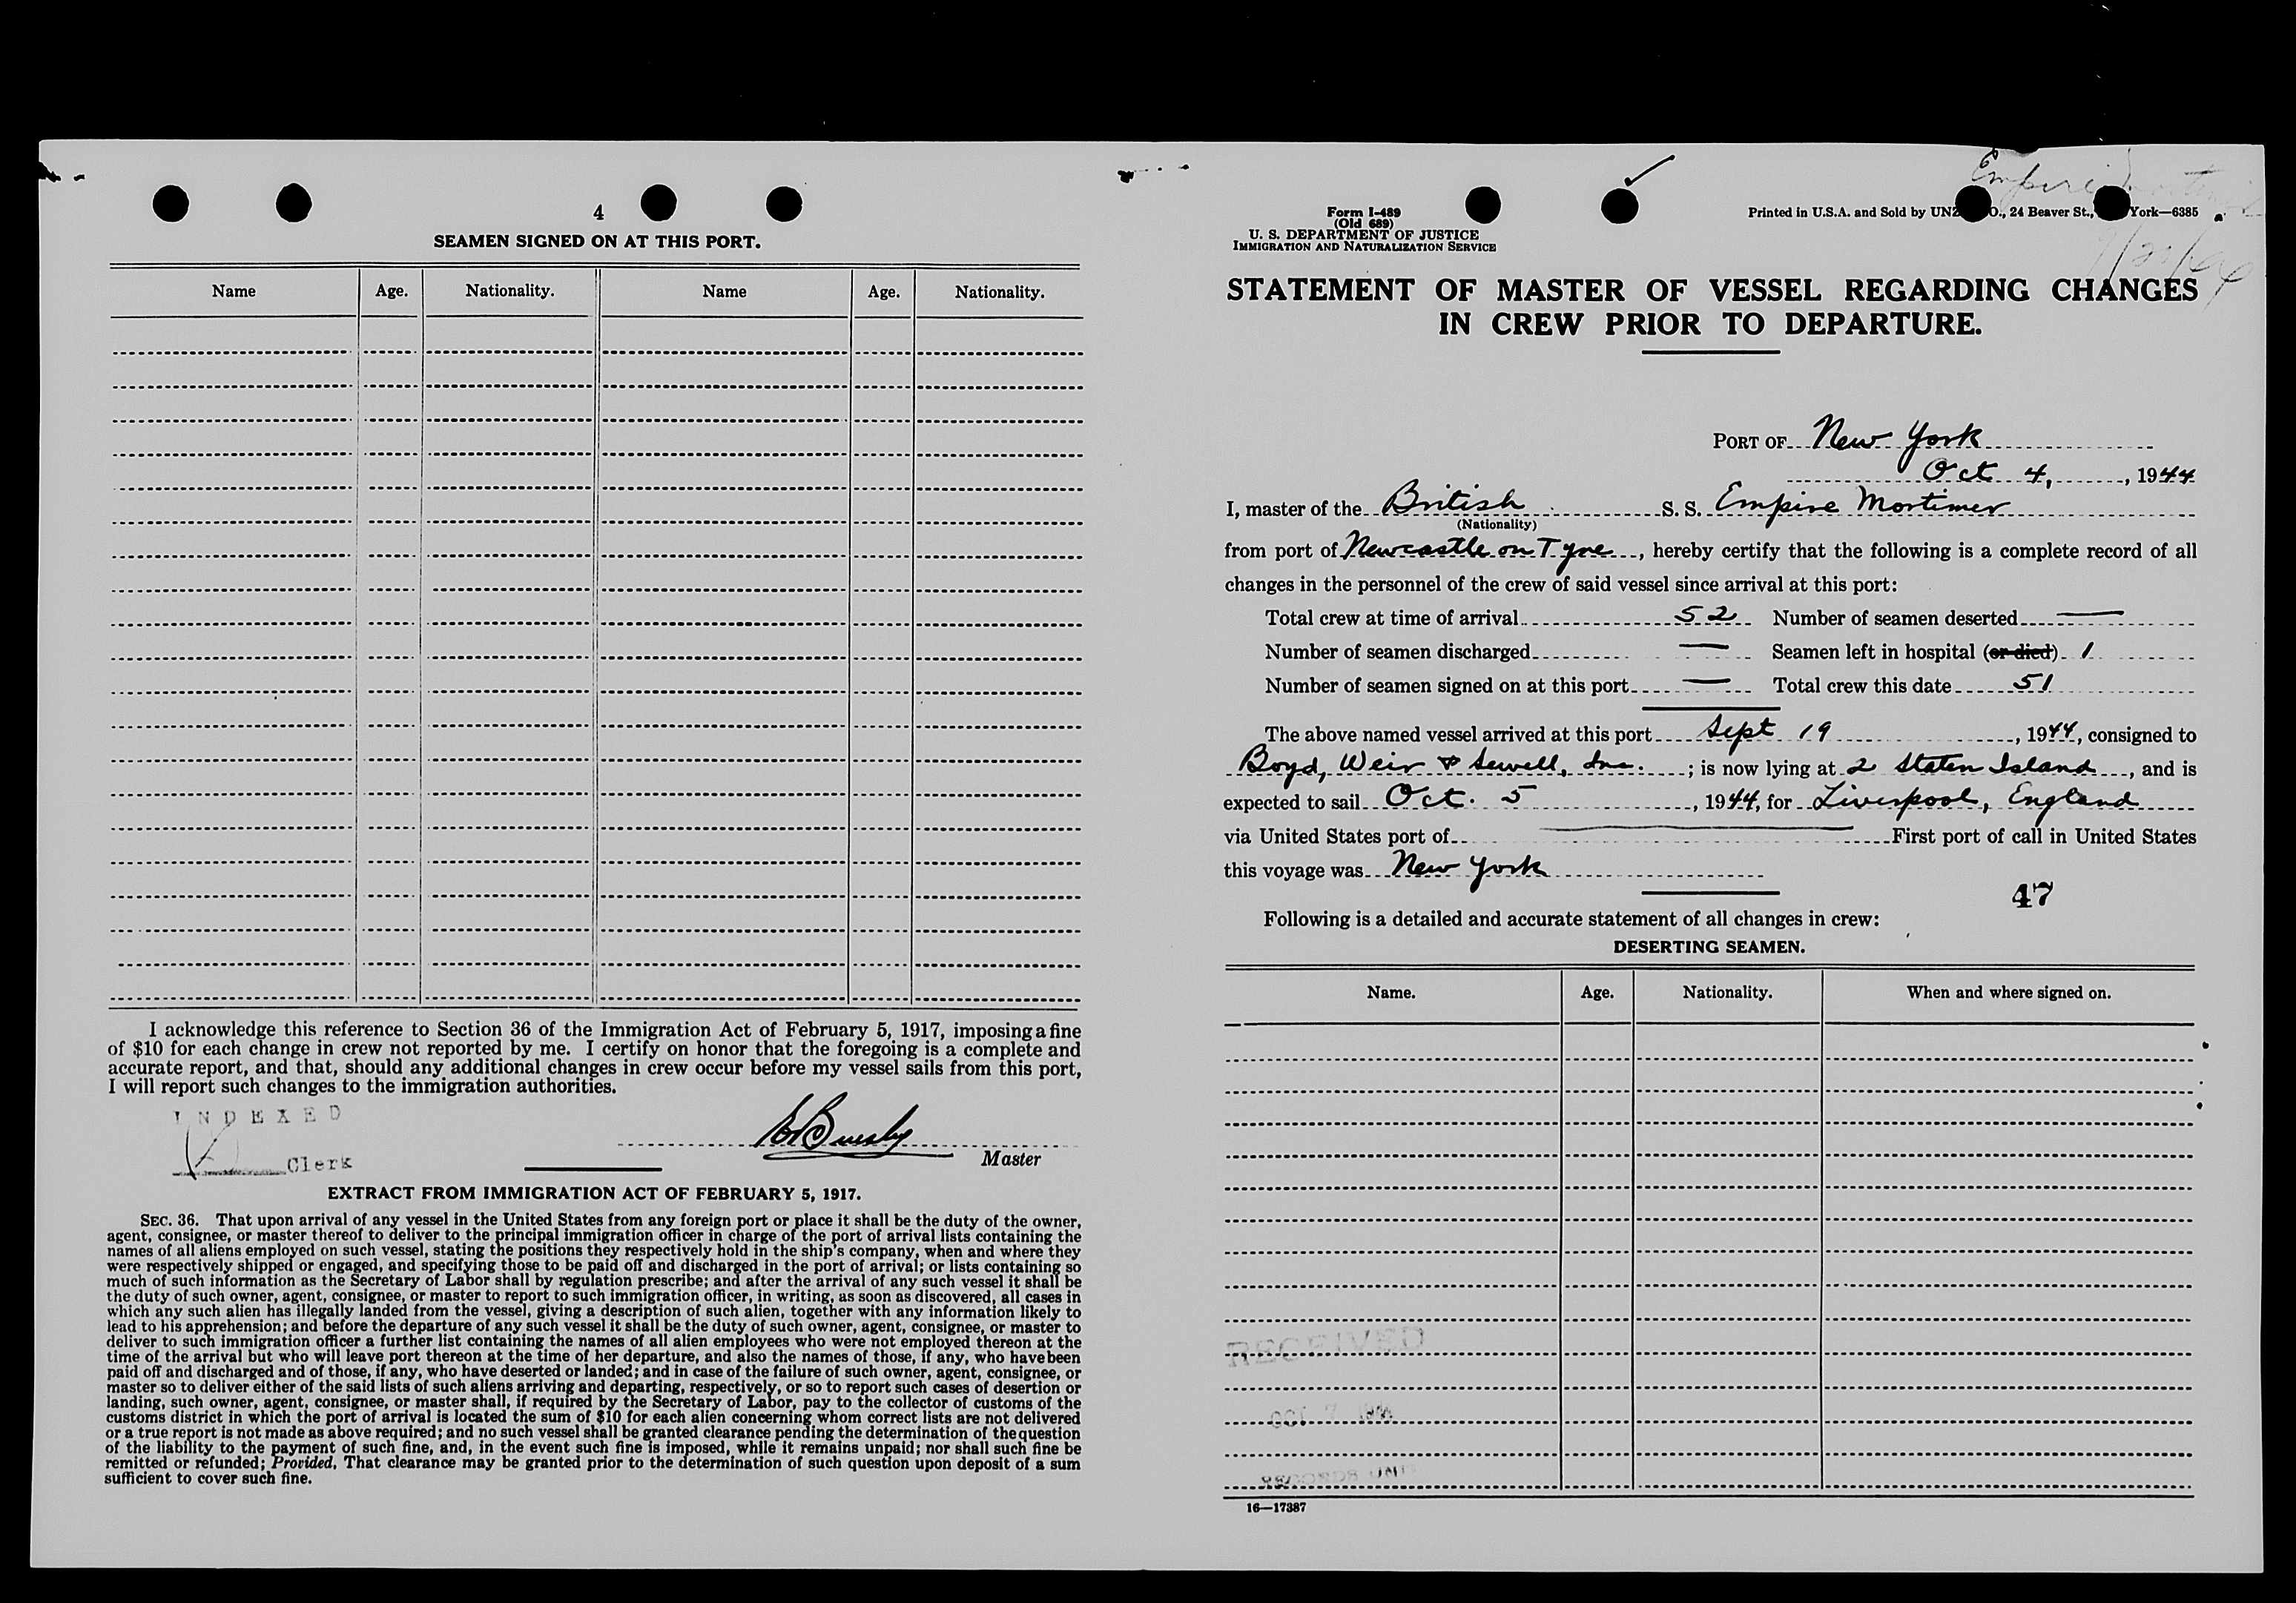 4
SEAMEN SIGNED ON AT THIS PORT.
Name Age. Nationality. Name Age. Nationality.
I acknowledge this reference to Section 36 of the Immigration Act of February 5, 1917, imposing a fine
of $10 for each change in crew not reported by me. I certify on honor that the foregoing is a complete and
accurate report, and that, should any additional changes in crew occur before my vessel sails from this port,
I will report such changes to the immigration authorities.
INDEXED
Clerk
Master
EXTRACT FROM IMMIGRATION ACT OF FEBRUARY 5, 1917.
SEC. 36. That upon arrival of any vessel in the United States from any foreign port or place it shall be the duty of the owner,
agent, consignee, or master thereof to deliver to the principal immigration officer in charge of the port of arrival lists containing the
names of all aliens employed on such vessel, stating the positions they respectively hold in the ship's company, when and where they
were respectively shipped or engaged, and specifying those to be paid off and discharged in the port of arrival; or lists containing so
much of such information as the Secretary of Labor shall by regulation prescribe; and after the arrival of any such vessel it shall be
the duty of such owner, agent, consignee, or master to report to such immigration officer, in writing, as soon as discovered, all cases in
which any such alien has illegally landed from the vessel, giving a description of such alien, together with any information likely to
lead to his apprehension; and before the departure of any such vessel it shall be the duty of such owner, agent, consignee, or master to
deliver to such immigration officer a further list containing the names of all alien employees who were not employed thereon at the
time of the arrival but who will leave port thereon at the time of her departure, and also the names of those, if any, who have been
paid off and discharged and of those, if any, who have deserted or landed; and in case of the failure of such owner, agent, consignee, or
master so to deliver either of the said lists of such aliens arriving and departing, respectively, or so to report such cases of desertion or
landing, such owner, agent, consignee, or master shall, if required by the Secretary of Labor, pay to the collector of customs of the
customs district in which the port of arrival is located the sum of $10 for each alien concerning whom correct lists are not delivered
or a true report is not made as above required; and no such vessel shall be granted clearance pending the determination of the question
of the liability to the payment of such fine, and, in the event such fine is imposed, while it remains unpaid; nor shall such fine be
remitted or refunded; Provided, That clearance may be granted prior to the determination of such question upon deposit of a sum
sufficient to cover such fine.
Empire
Form I-489
(Old 689)
U. S. DEPARTMENT OF JUSTICE
IMMIGRATION AND NATURALIZATION SERVICE
Printed in U.S.A. and Sold by UNZ O., 24 Beaver St., York—6385
STATEMENT OF MASTER OF VESSEL REGARDING CHANGES
IN CREW PRIOR TO DEPARTURE.
PORT OF New York
Oct 4, , 1944
I, master of the British S. S. Empire Mortimer
(Nationality)
from port of Newcastle on Tyne, hereby certify that the following is a complete record of all
changes in the personnel of the crew of said vessel since arrival at this port:
Total crew at time of arrival 52 Number of seamen deserted —
Number of seamen discharged — Seamen left in hospital (or died) 1
Number of seamen signed on at this port — Total crew this date 51
The above named vessel arrived at this port Sept 19, 1944, consigned to
Boyd, Weir & Sewell, Inc. ; is now lying at 2 Staten Island, and is
expected to sail Oct. 5, 1944, for Liverpool, England
via United States port of — First port of call in United States
this voyage was New York
47
Following is a detailed and accurate statement of all changes in crew:
DESERTING SEAMEN.
Name. Age. Nationality. When and where signed on.
RECEIVED
16—17387